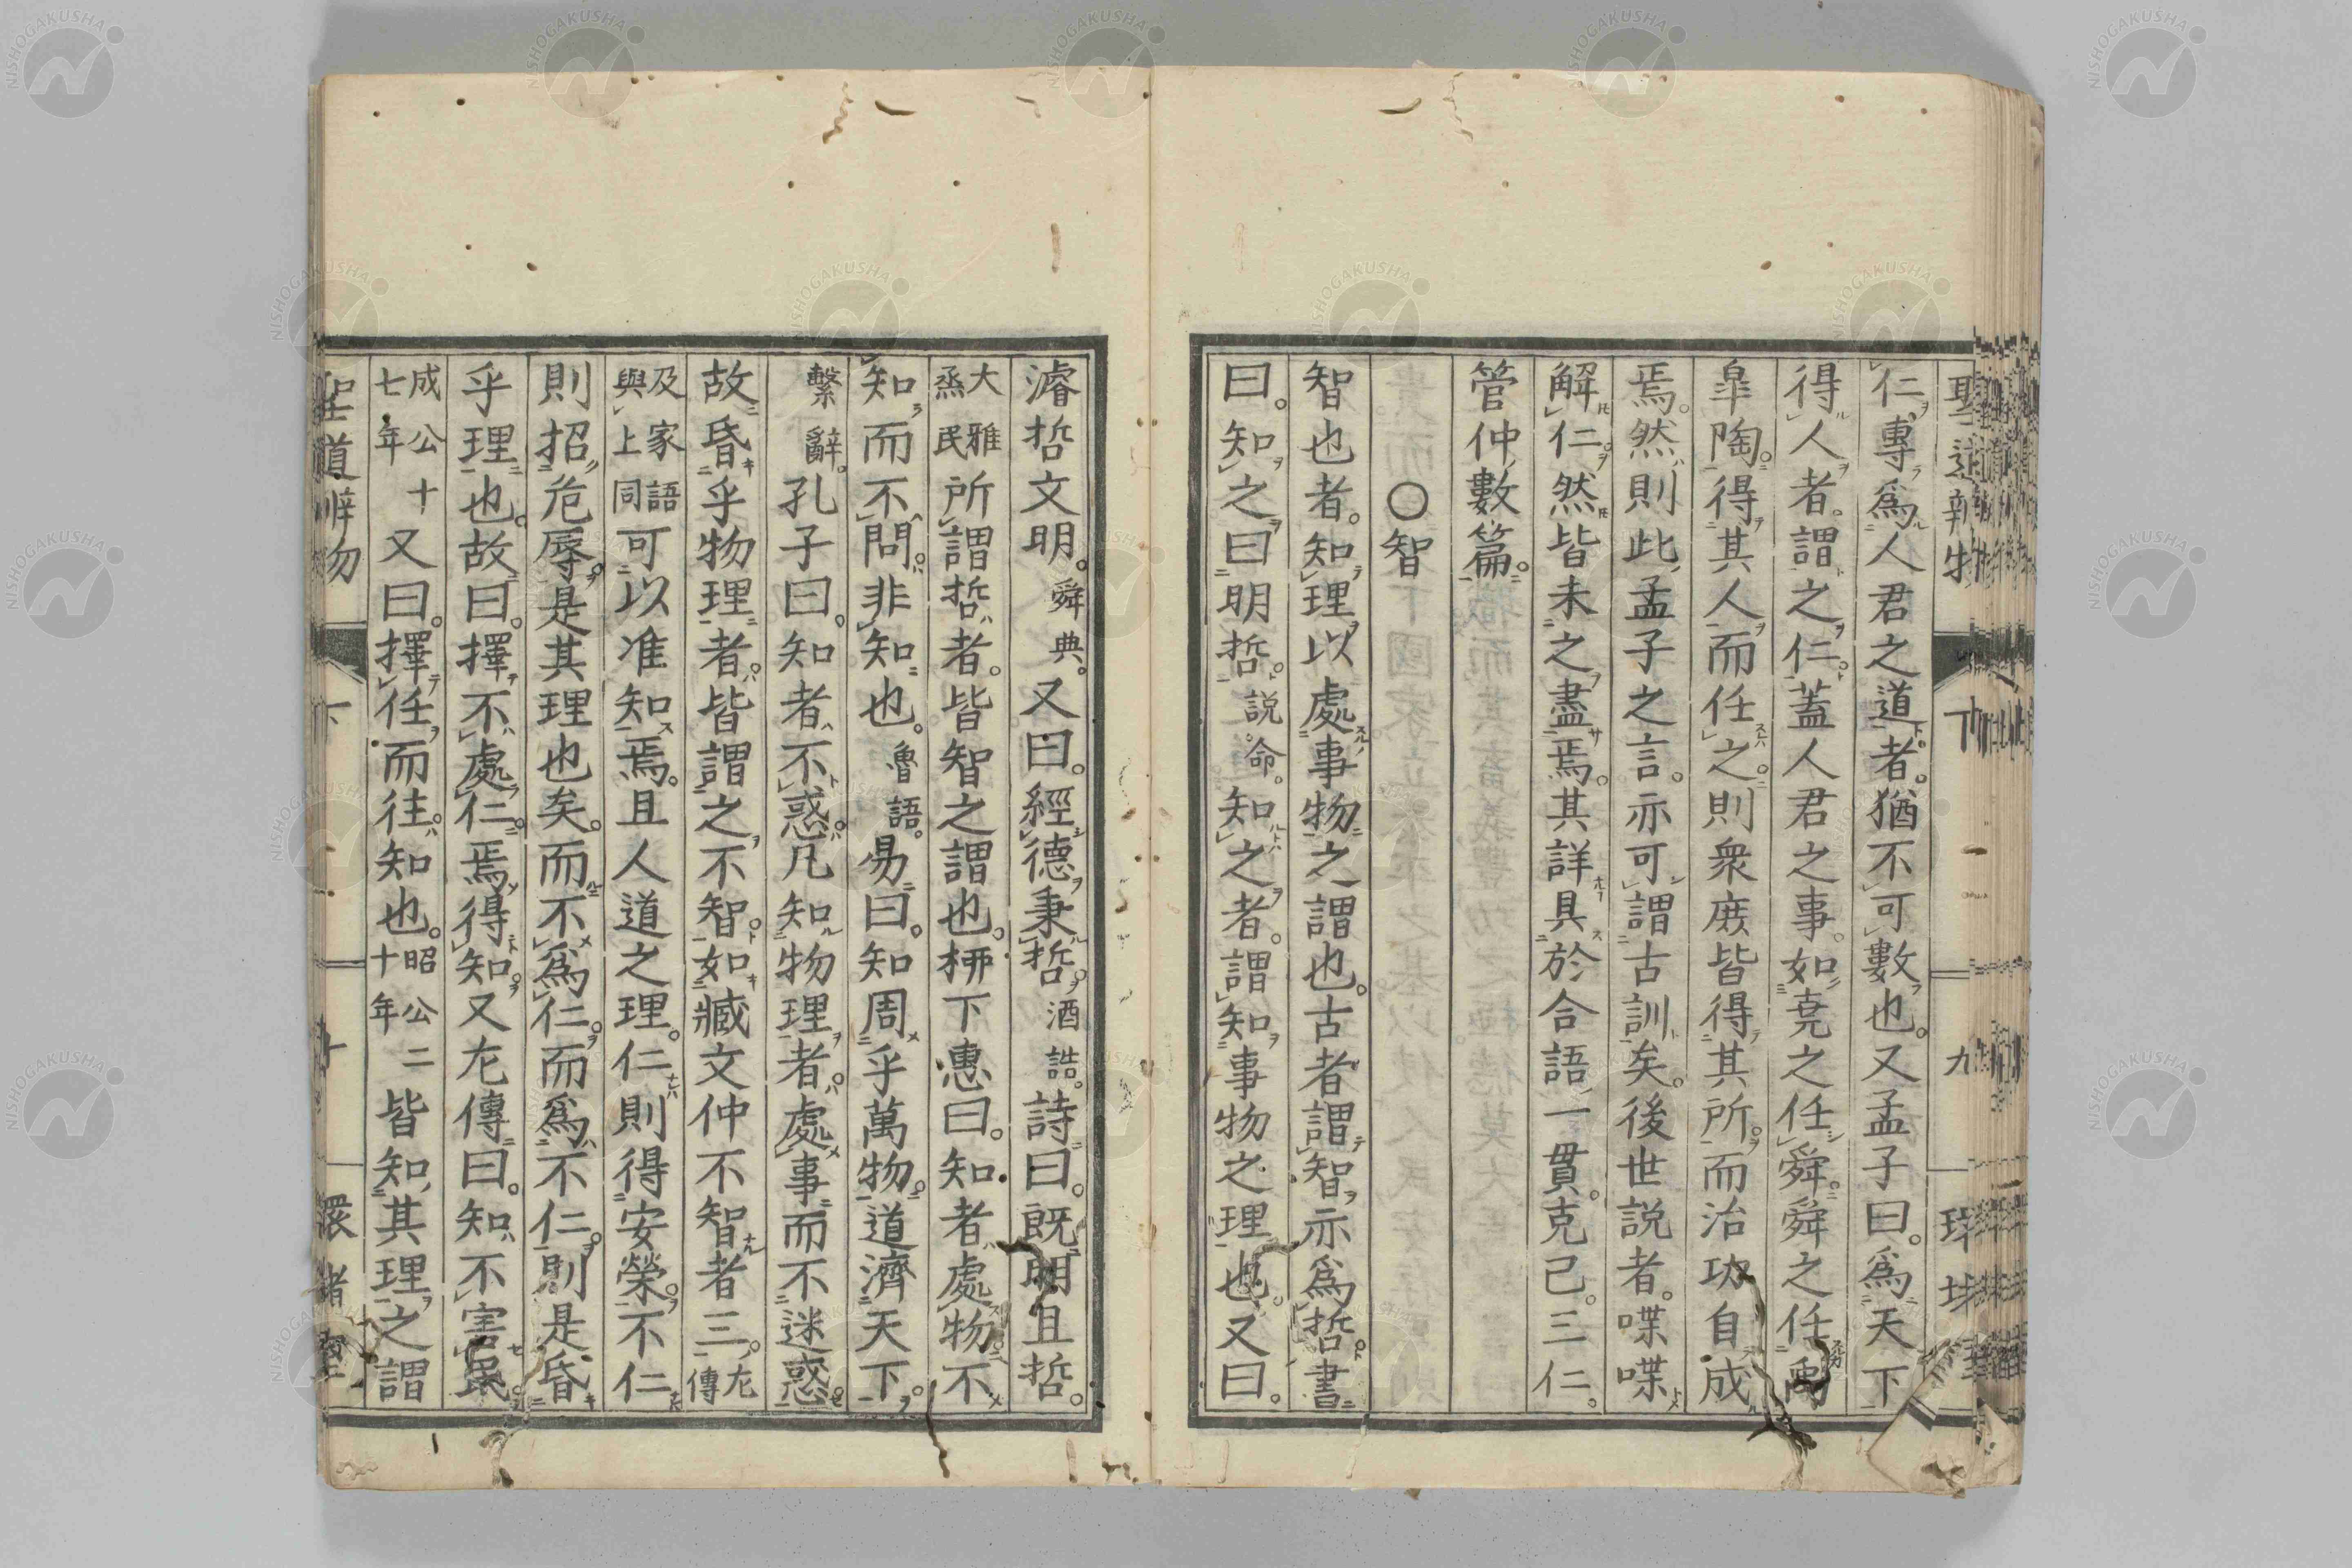 仁專爲人君之道者。猶不可數也。又孟子曰。爲天下
得人者。謂之仁。蓋人君之事。如堯之任舜。舜之任禹
皐陶。得其人而任之。則衆庻皆得其所。而治功自成
焉。然則此孟子之言。亦可謂古訓矣。後世説者。喋喋
解仁。然皆未之盡焉。其詳具於合語一貫。克己。三仁。
管仲數篇。
○智
智也者。知理以處事物之謂也。古者謂智亦爲哲。書
曰。知之曰明哲。説命。知之者。謂知事物之理也。又曰。
濬哲文明。舜典。又曰。經德秉哲。酒誥。詩曰。既明且哲。
大雅烝民所謂哲者。皆智之謂也。柳下惠曰。知者處物。不
知而不問。非知也。魯語。易曰。知周乎萬物。道濟天下。
繫辭。孔子曰。知者不惑。凡知物理者。處事而不迷惑。
故昏乎物理者。皆謂之不智。如臧文仲不智者三。左傳
及家語與上同可以准知焉。且人道之理。仁則得安榮。不仁
則招危辱。是其理也矣。而不爲仁。而爲不仁。則是昏
乎理也。故曰。擇不處仁。焉得知。又左傳曰。知不害民
成公十七年又曰。擇任而往。知也。昭公二十年皆知其理之謂
聖道辨物
下
九
環堵
NISHOGAKUSHA